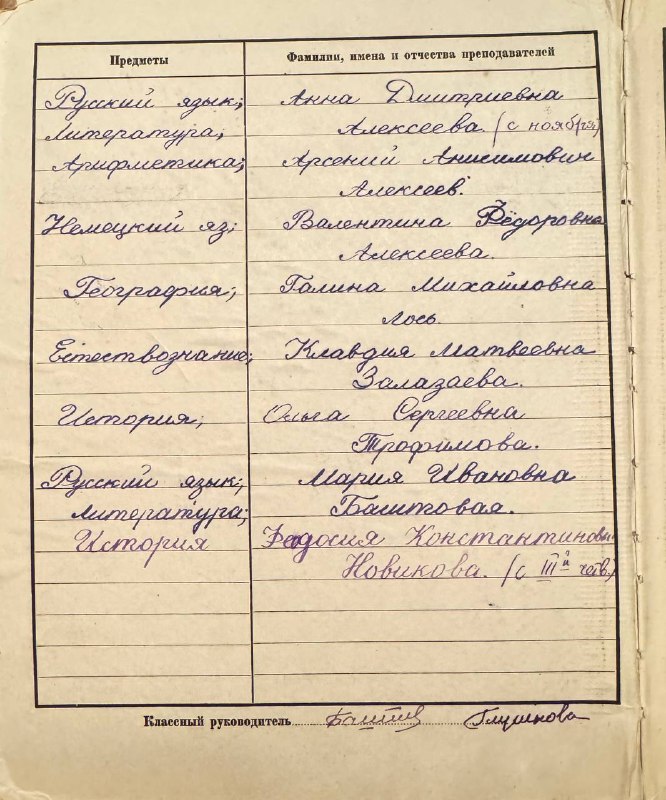 Предметы Фамилии, имена и отчества преподавателей
Русский язык; Анна Дмитриевна
Литература; Алексеева. (с ноября)
Арифметика; Арсений Анисимович
Алексеев.
Немецкий яз; Валентина Фёдоровна
Алексеева.
География; Галина Михайловна
Лось.
Естествознание; Клавдия Матвеевна
Залазаева.
История; Ольга Сергеевна
Трофимова.
Русский язык; Мария Ивановна
Литература; Баштовая.
История Феодосия Константиновн
Новикова. (с III й четв.)
Классный руководитель